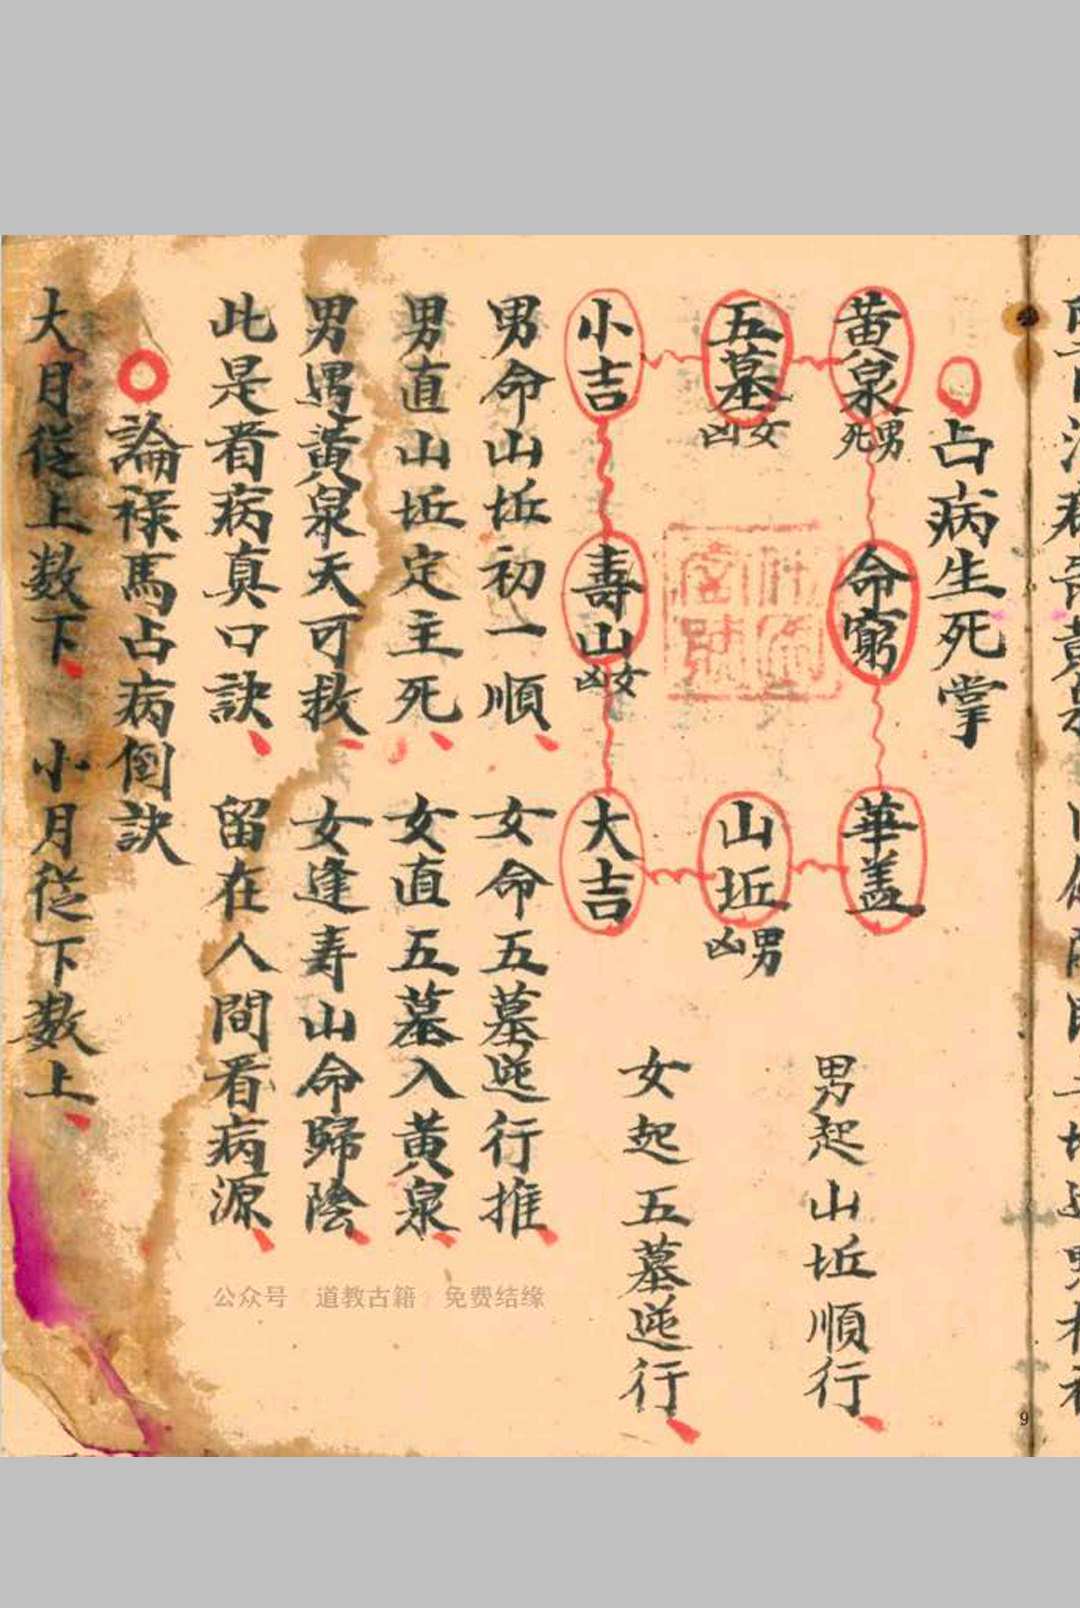 占病生死掌
黃泉 男死
命窮
華蓋
男起山坵順行
五墓 女凶
山坵 男凶
女起五墓逆行
小吉
壽山 女凶
大吉
男命山坵初一順 女命五墓逆行推
男直山坵定主死 女直五墓入黄泉
男遇黃泉天可救 女逢寿山命歸陰
此是看病真口訣 留在人間看病源
論祿馬占病倒訣
大月從上数下 小月從下数上
公众号 道教古籍 免费结缘
9